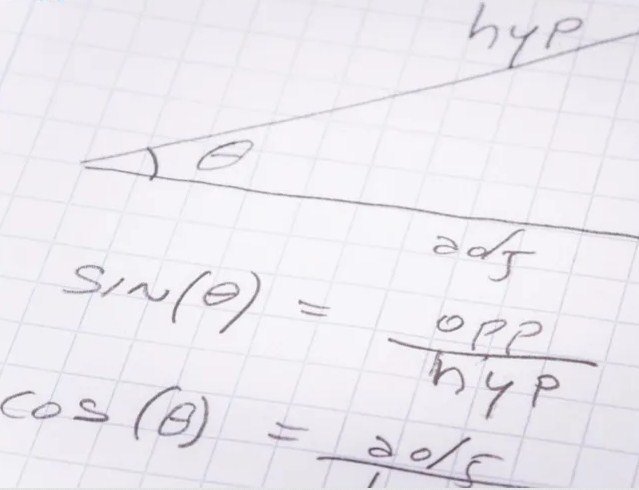 hyp
θ
adj
sin(θ) = opp/hyp
cos(θ) = adj/